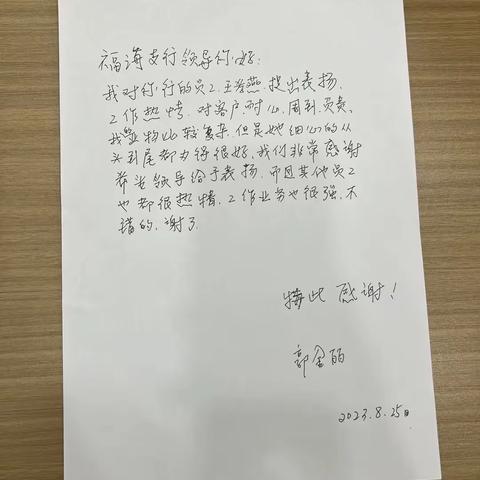 福海支行领导你好:
我对你行的员工王登燕提出表扬,
工作热情,对客户耐心,周到,负责,
我业物比较复杂,但是她细心的从
头到尾都办得很好,我们非常感谢
希望领导给予表扬,而且其他员工
也都很热情,工作业务也很强,不
错的,谢了.
特此感谢!
郭金丽
2023.8.25日